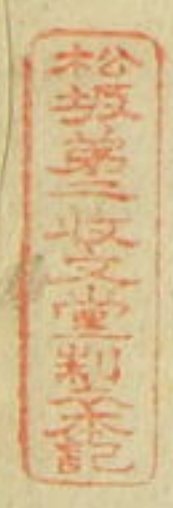 松坂第二収文堂製本記